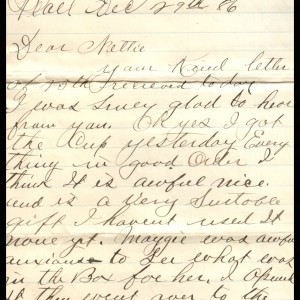 Hall Dec 29th 86
Dear Nettie
your Kind letter
of 25th received today
I was surey glad to hear
from you. Oh yes I got
the Cup yesterday Every
thing in good Order I
think It is awful nice
and is a very Suitable
gift I havent used It
none yt. Maggie was awful
anxious to See what was
in the Box for her. I Opened
it then went over to the